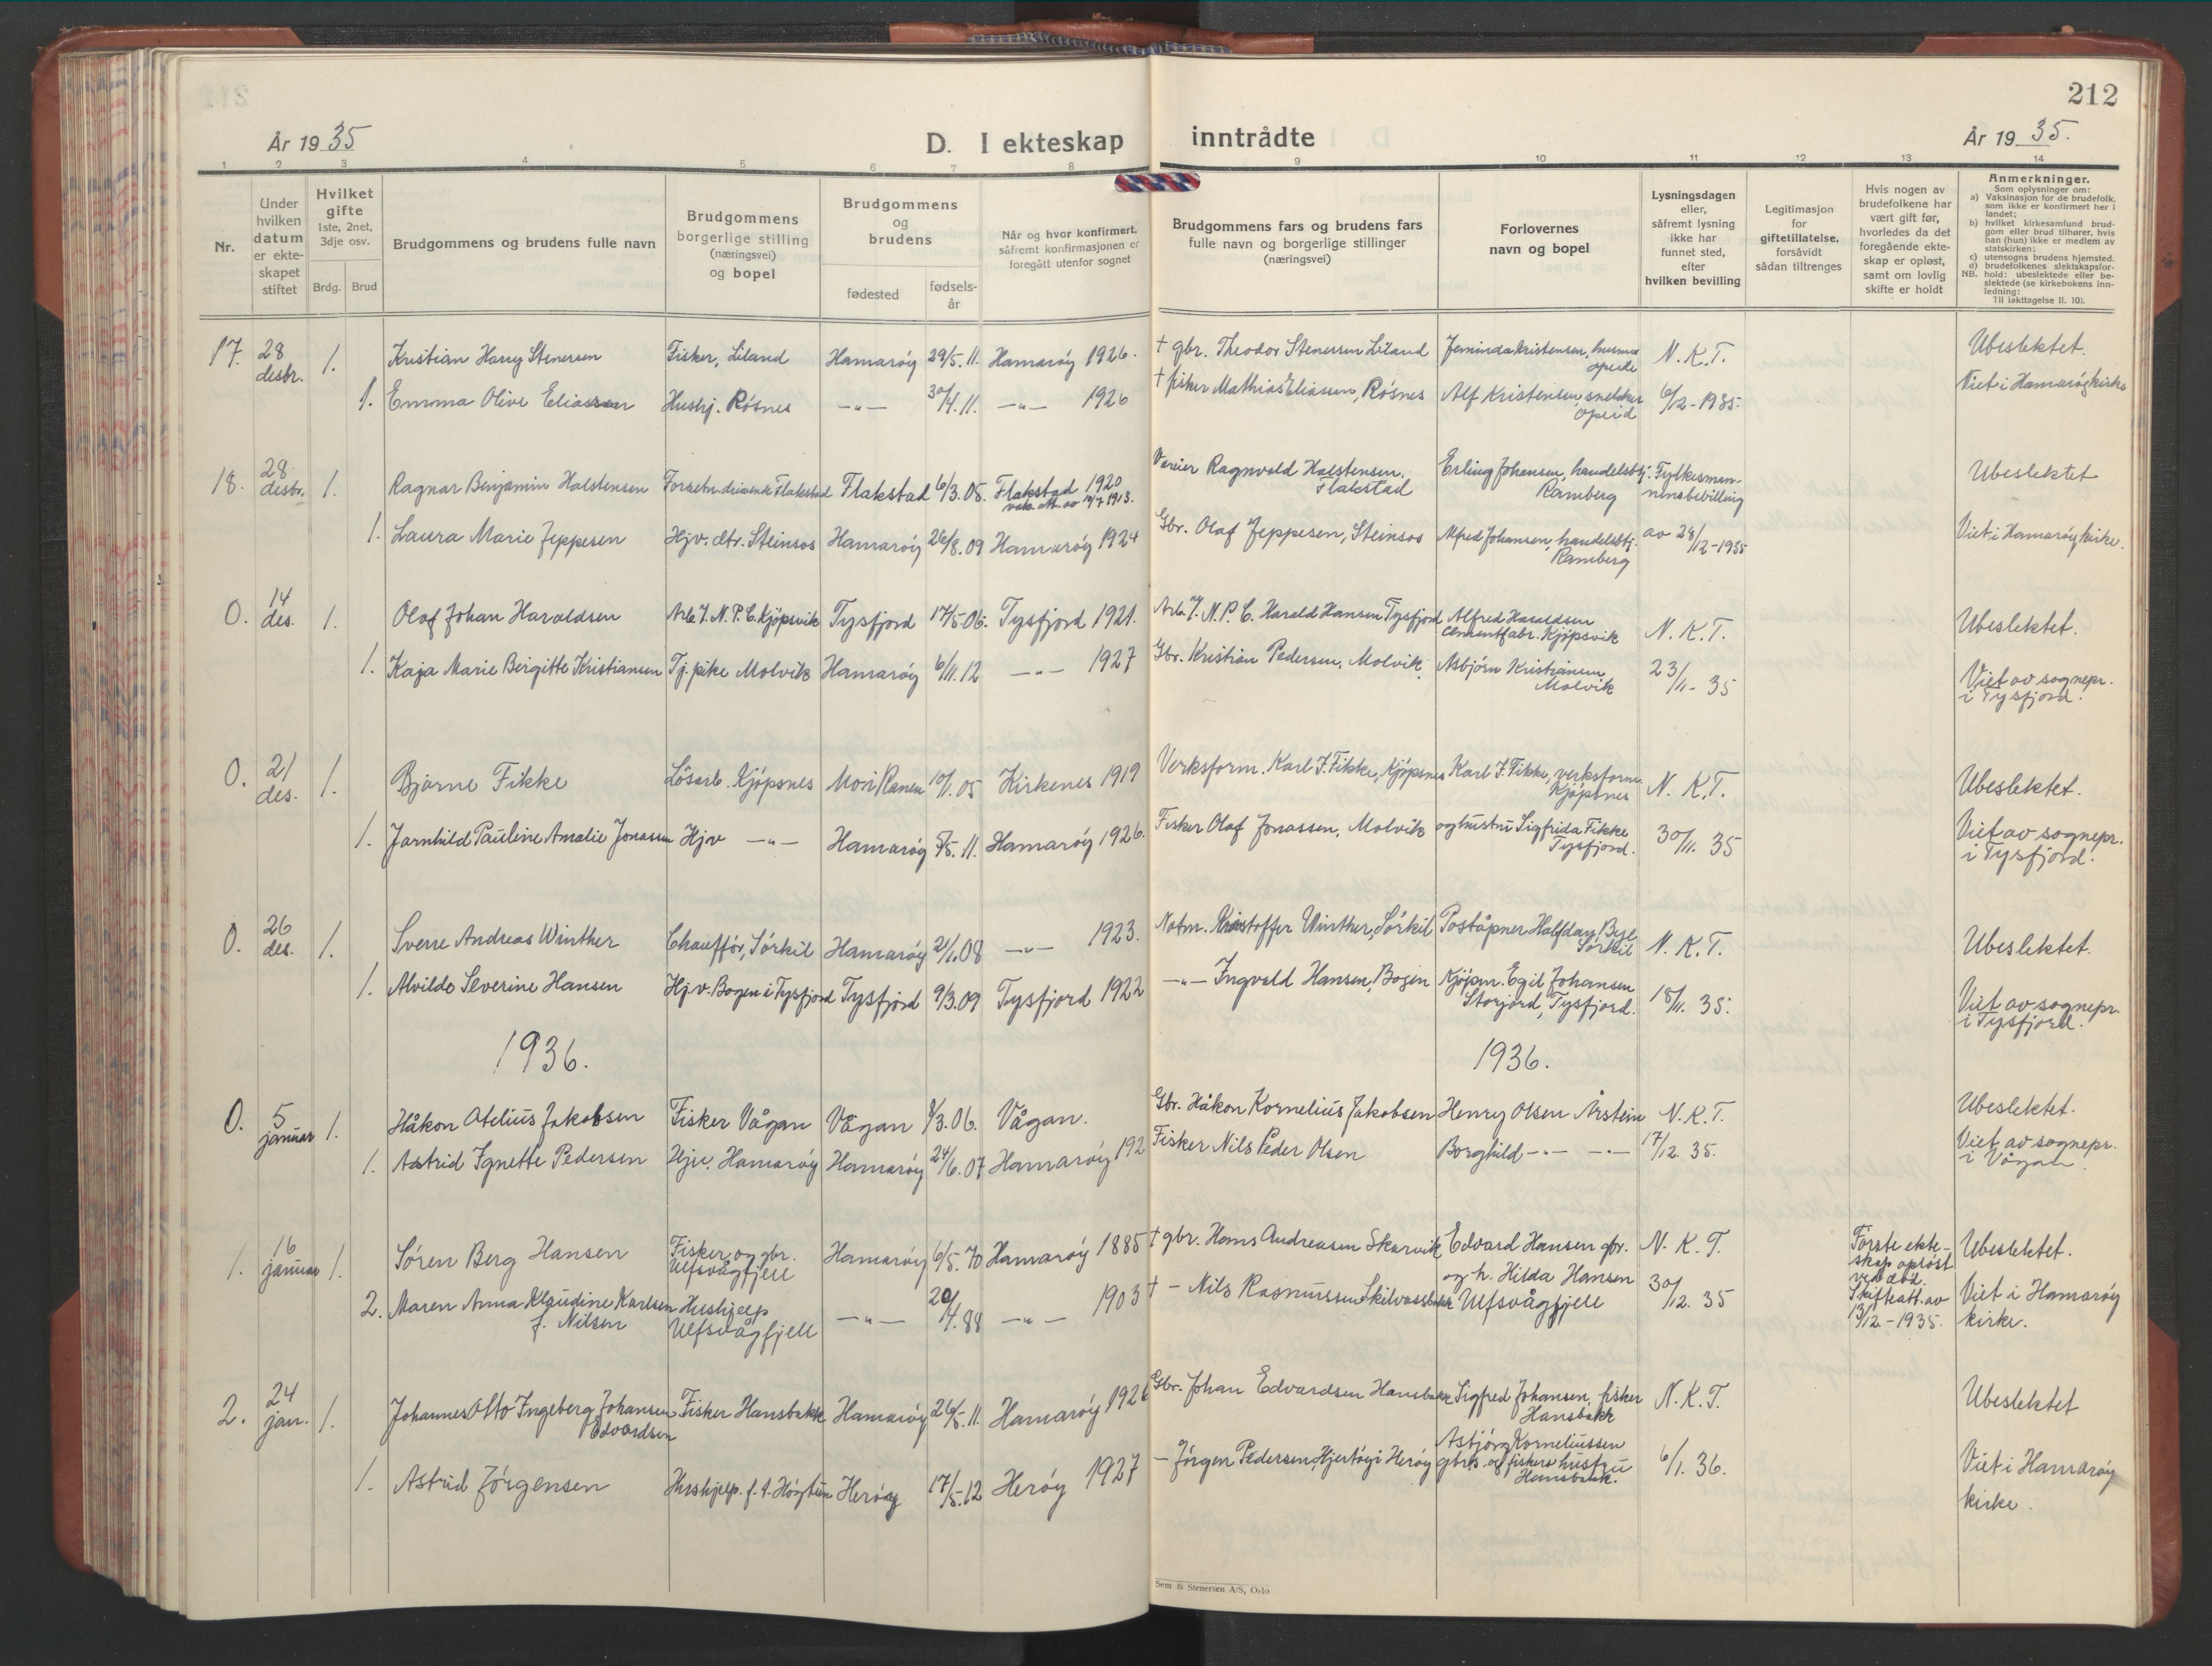 212
År 1935
D. I ekteskap inntrådte
År 1935.
1 2 3 4 5 6 7 8 9 10 11 12 13 14
Nr.
Under hvilken datum er ekte-skapet stiftet
Hvilket gifte 1ste, 2net, 3dje osv.
Brdg. Brud
Brudgommens og brudens fulle navn
Brudgommens borgerlige stilling (næringsvei) og bopel
Brudgommens og brudens
fødested
fødsels-år
Når og hvor konfirmert. såfremt konfirmasjonen er foregått utenfor sognet
Brudgommens fars og brudens fars fulle navn og borgerlige stillinger (næringsvei)
Forlovernes navn og bopel
Lysningsdagen eller, såfremt lysning ikke har funnet sted, efter hvilken bevilling
Legitimasjon for giftetillatelse, forsåvidt sådan tiltrenges
Hvis nogen av brudefolkene har vært gift før, hvorledes da det foregående ekte-skap er opløst, samt om lovlig skifte er holdt
Anmerkninger.
Som oplysninger om:
a) Vaksinasjon for de brudefolk, som ikke er konfirmert her i landet;
b) hvilket kirkesamfund brud-gom eller brud tilhører, hvis han (hun) ikke er medlem av statskirken;
c) utensogns brudens hjemsted.
d) brudefolkenes slektskapsfor-hold: ubeslektede eller be-slektede (se kirkebokens inn-ledning:
NB. Til iakttagelse II. 10).
17. 28 desbr. 1. Kristian Harry Stenersen Fisker, Liland Hamarøy 29/5.11. Hamarøy 1926. † gbr. Theodor Stenersen Liland Jeminda Kristensen, husmor Opeid N.K.T. Ubeslektet.
1. Emma Olive Eliassen Hushj. Røsnes —"— 30/4.11. —"— 1926 † fisker Mathias Eliassen, Røsnes Alf Kristensen, snekker Opeid 6/12-1935. Viet i Hamarøy kirke
18. 28 desbr. 1. Ragnar Benjamin Halstensen Forretn.drivende Flakstad Flakstad 6/3.05. Flakstad 1920 vak. att. av 10/7 1913. Ragnvald Halstensen, Flakstad Erling Johansen, handelsbtj. Ramberg Fylkesmen-nens bevilling Ubeslektet
1. Laura Marie Jeppesen Hjv. dtr. Steinsos Hamarøy 26/8.09 Hamarøy 1924 Gbr. Olaf Jeppesen, Steinsos Alfred Johansen, handelsbtj. Ramberg av 28/12-1935 Viet i Hamarøy kirke.
0. 14 des. 1. Olaf Johan Haraldsen Arb. N.P.C. Kjøpsvik Tysfjord 17/5.06. Tysfjord 1921. Arb. N.P.C. Harald Hansen Tysfjord Alfred Haraldsen cementfabr. Kjøpsvik N.K.T. Ubeslektet.
1. Kaja Marie Bergitte Kristiansen Tj. pike Molvik Hamarøy 6/11.12 —"— 1927 Gbr. Kristian Pedersen, Molvik Asbjørn Kristiansen Molvik 23/11-35 Viet av sognepr. i Tysfjord.
0. 21 des. 1. Bjarne Fikke Løsarb. Kjøpsnes Mo i Ranen 10/1.05 Kirkenes 1919 Verksform. Karl J. Fikke, Kjøpsnes Karl J. Fikke, verksform. Kjøpsnes N.K.T. Ubeslektet.
1. Jarnhild Pauline Amalie Jonassen Hjv —"— Hamarøy 5/5.11. Hamarøy 1926. Fisker Olaf Jonassen, Molvik og hustru Sigfrida Fikke Tysfjord. 30/11. 35 Viet av sognepr. i Tysfjord.
0. 26 des. 1. Sverre Andreas Winther Chauffør, Sørkil Hamarøy 21/1.08 —"— 1923. Notm. Kristoffer Winther, Sørkil Poståpner Halfdan Bye Sørkil N.K.T. Ubeslektet.
1. Alvilde Severine Hansen Hjv. Bogen i Tysfjord Tysfjord 9/3.09 Tysfjord 1922 —"— Ingvald Hansen, Bogen Kjøpm. Egil Johansen Storjord, Tysfjord. 18/11. 35. Viet av sognepr. i Tysfjord.
1936. 1936.
0. 5 januar 1. Håkon Atelius Jakobsen Fisker Vågan Vågan 8/3.06. Vågan. Gbr. Håkon Kornelius Jakobsen Henry Olsen Årstein N.K.T. Ubeslektet.
1. Astrid Agnette Pedersen Hjv. Hamarøy Hamarøy 24/6.07 Hamarøy 192 Fisker Nils Peder Olsen Borghild —"— —"— 17/12. 35. Viet av sognepr. i Vågan.
1. 16 januar 1. Søren Berg Hansen Fisker og gbr. Ulfsvågfjell Hamarøy 6/5.70 Hamarøy 1885 † gbr. Hans Andreasen Skarvik Edvard Hansen gbr. N.K.T. Første ekte-skap opløst ved død. Skifteatt. av 13/12-1935. Ubeslektet.
2. Maren Anna Klaudine Karlsen f. Nilsen Hushjelp Ulfsvågfjell —"— 20/4.88 —"— 1903 † — Nils Rasmussen Skilvassbakk og h. Hilda Hansen Ulfsvågfjell 30/12. 35 Viet i Hamarøy kirke.
2. 24 jan. 1. Johannes Otto Ingeberg Johansen Edvardsen Fisker Hansbakk Hamarøy 26/5.11. Hamarøy 1926 Gbr. Johan Edvardsen Hansbakk Sigfred Johansen, fisker Hansbakk N.K.T. Ubeslektet
1. Astrid Jørgensen Hushjelp. Herøy 17/5.12 Herøy 1927 — Jørgen Pedersen, Hjertøy i Herøy Asbjørg Korneliussen gbrs. og fiskers hustru Hansbakk. 6/1. 36. Viet i Hamarøy kirke.
Sem & Stenersen A/S, Oslo